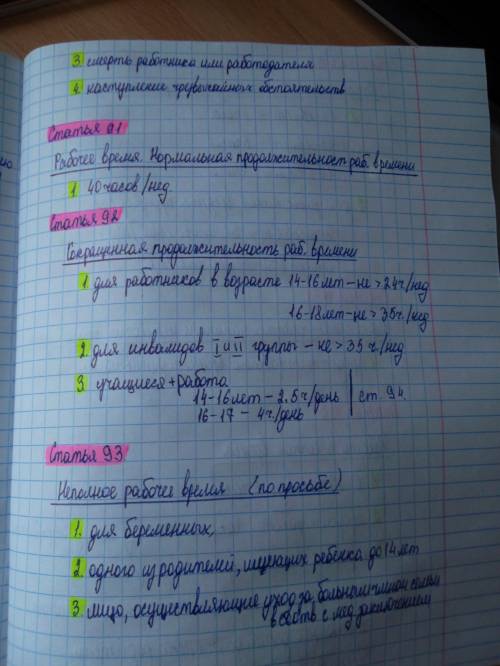 3. смерть работника или работодателя
4. наступление чрезвычайных обстоятельств
Статья 91
Рабочее время. Нормальная продолжительност раб. времени
1. 40 часов/нед.
Статья 92
Сокращенная продолжительность раб. времени
1. для работников в возрасте 14-16 лет - не > 24 ч/нед
16-18 лет - не > 35 ч./нед
2. для инвалидов I и II группы - не > 35 ч./нед
3. учащиеся + работа
14-16 лет - 2,5 ч/день | ст. 94.
16-17 - 4 ч./день
Статья 93
Неполное рабочее время (по просьбе)
1. для беременных,
2. одного из родителей, имеющих ребенка до 14 лет
3. лицо, осуществляющие уход за больным членом семьи
в соотв с мед. заключением